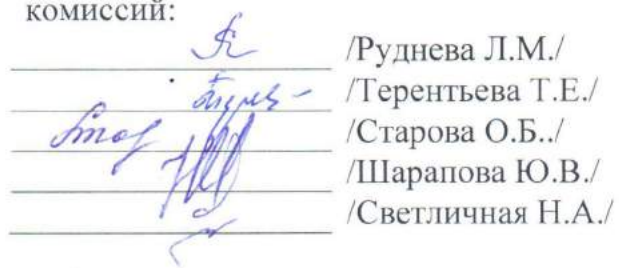 комиссий:
/Руднева Л.М./
/Терентьева Т.Е./
/Старова О.Б../
/Шарапова Ю.В./
/Светличная Н.А./